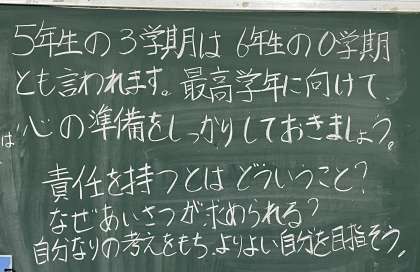 5年生の3学期は 6年生の0学期
とも言われます。最高学年に向けて、
心の準備をしっかりしておきましょう。
責任を持つとは どういうこと?
なぜあいさつが求められる?
自分なりの考えをもち、よりよい自分を目指そう。